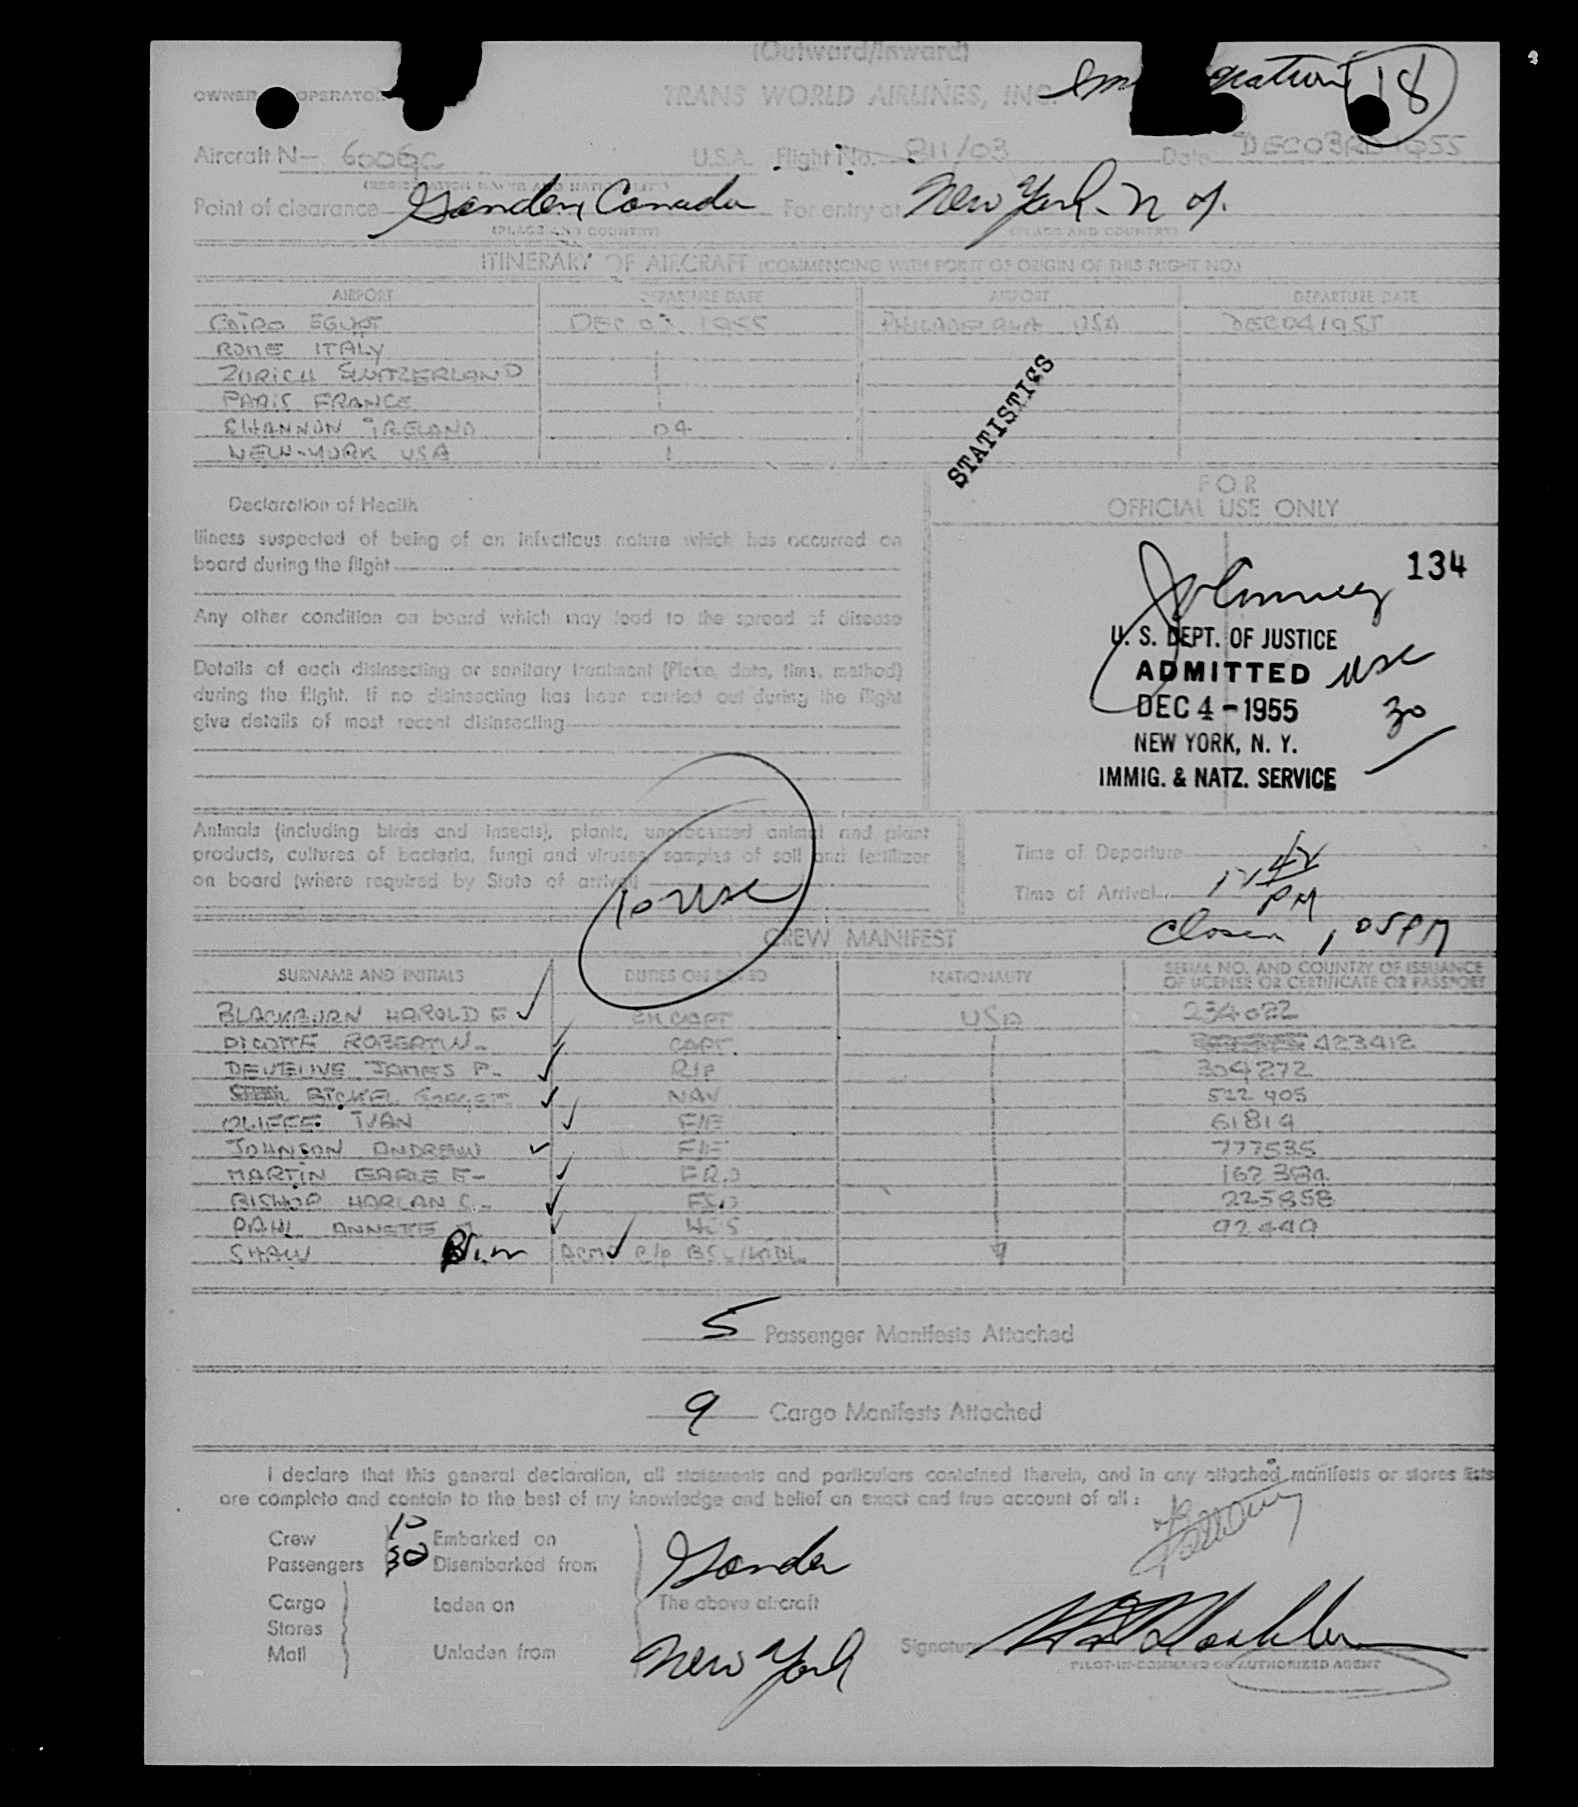 (Outward/Inward)
OWNER OPERATOR TRANS WORLD AIRLINES, INC. 18
Aircraft N— 6006C U.S.A. Flight No. 811/03 Date DEC 03RD 1955
Point of clearance Gander, Canada For entry at New York. N Y.
(PLACE AND COUNTRY) (PLACE AND COUNTRY)
ITINERARY OF AIRCRAFT (COMMENCING WITH POINT OF ORIGIN OF THIS FLIGHT NO.)
AIRPORT DEPARTURE DATE AIRPORT DEPARTURE DATE
CAIRO EGYPT DEC 03. 1955 PHILADELPHIA USA DEC 04 1955
ROME ITALY
ZURICH SWITZERLAND
PARIS FRANCE
SHANNON IRELAND 04
NEW-YORK USA
STATISTICS
Declaration of Health
Illness suspected of being of an infectious nature which has occurred on
board during the flight
Any other condition on board which may lead to the spread of disease
Details of each disinsecting or sanitary treatment (Place, date, time, method)
during the flight. If no disinsecting has been carried out during the flight
give details of most recent disinsecting
FOR
OFFICIAL USE ONLY
134
U. S. DEPT. OF JUSTICE
ADMITTED USC
DEC 4 - 1955 30
NEW YORK, N. Y.
IMMIG. & NATZ. SERVICE
Animals (including birds and insects), plants, unprocessed animal and plant
products, cultures of bacteria, fungi and viruses, samples of soil and fertilizer
on board (where required by State of arrival)
10 USC
Time of Departure
Time of Arrival 12 42 PM
Closed 1 05 PM
CREW MANIFEST
SURNAME AND INITIALS DUTIES ON BOARD NATIONALITY SERIAL NO. AND COUNTRY OF ISSUANCE
OF LICENSE OR CERTIFICATE OR PASSPORT
BLACKBURN HAROLD F CAPT USA 234022
ROBERT W. CAPT. 423412
JAMES P. R/P 304272
BICKEL NAV 522 405
OLIFFE IVAN F/E 61819
JOHNSON ANDREW F/E 777535
MARTIN EARLE E- F.R.O
BISHOP HARLAN C. 225858
PAHL ANNETTE HOS 92449
SHAW
5 Passenger Manifests Attached
9 Cargo Manifests Attached
I declare that this general declaration, all statements and particulars contained therein, and in any attached manifests or stores lists
are complete and contain to the best of my knowledge and belief an exact and true account of all:
Crew 10 Embarked on
Passengers 30 Disembarked from Gander
Cargo Laden on The above aircraft
Stores
Mail Unladen from New York
Signature
PILOT-IN-COMMAND OR AUTHORIZED AGENT